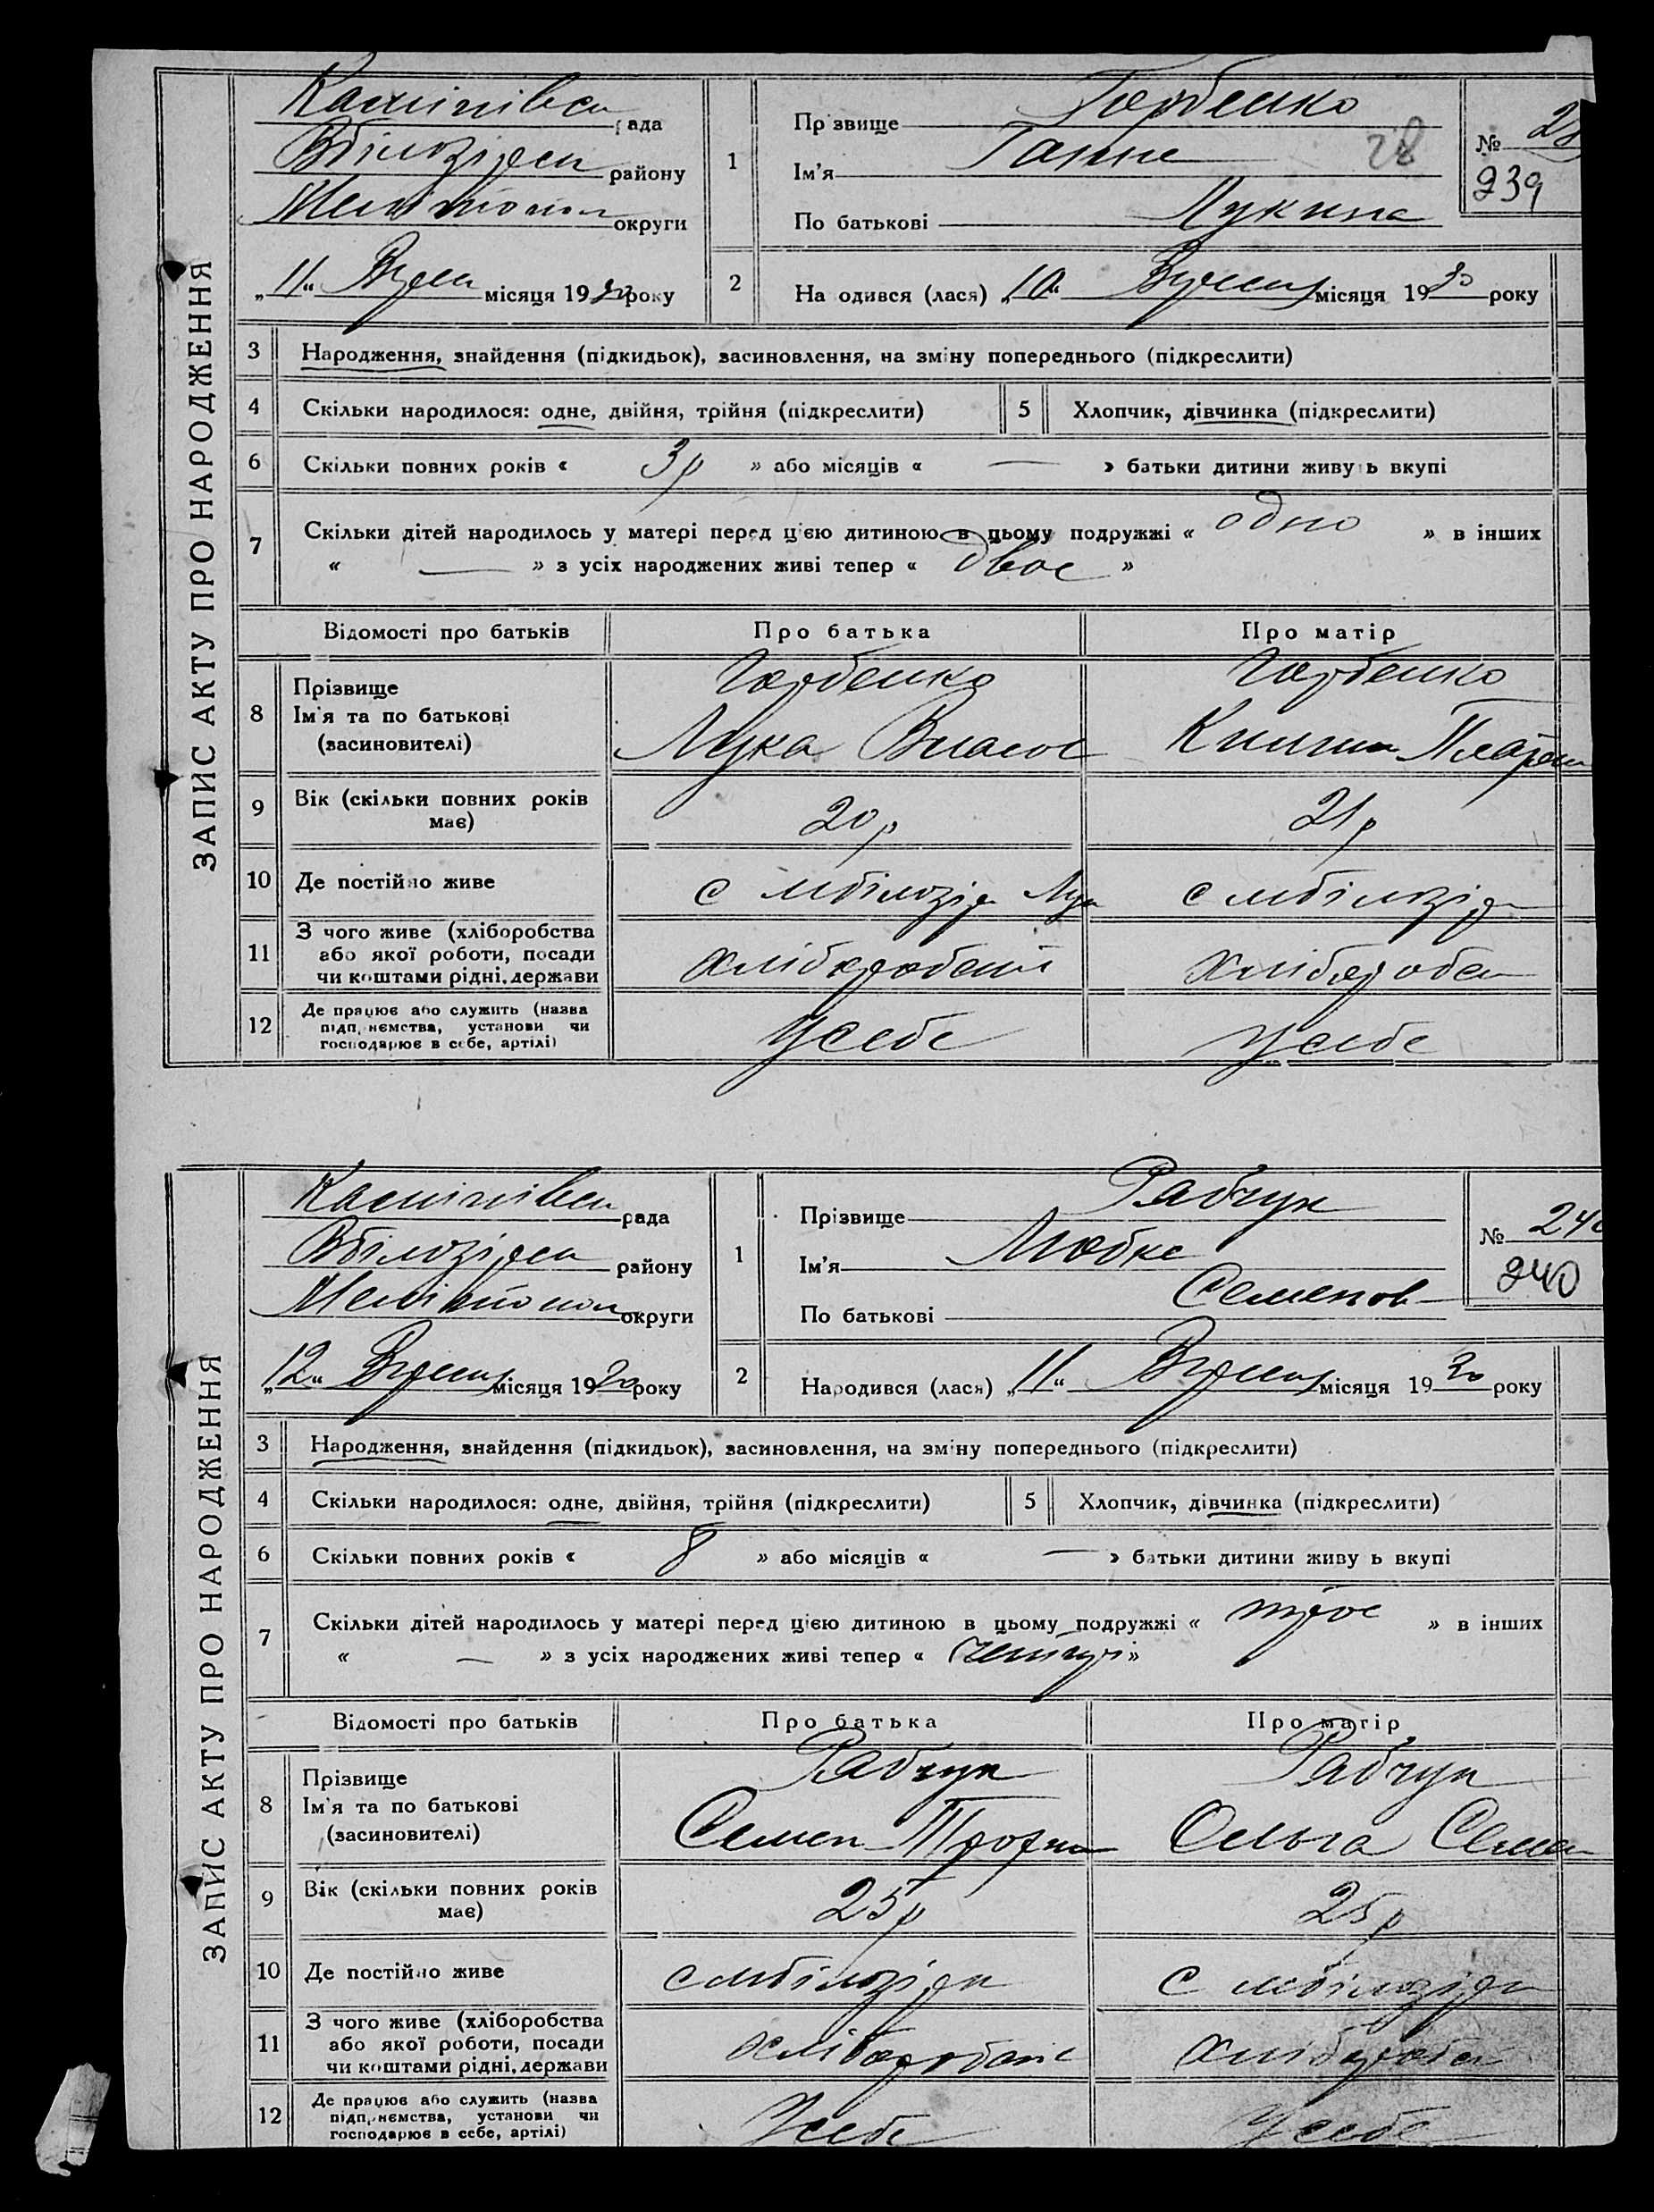 ЗАПИС АКТУ ПРО НАРОДЖЕННЯ
рада
району
округи
„11“ місяця 1930 року
1
Прізвище Горбенко
Ім'я Ганна
28
По батькові Лукина
№
239
2
На одився (лася) „10“ місяця 1930 року
3 Народження, знайдення (підкидьок), засиновлення, на зміну попереднього (підкреслити)
4 Скільки народилося: одне, двійня, трійня (підкреслити)
5 Хлопчик, дівчинка (підкреслити)
6 Скільки повних років « 3 р » або місяців « — » батьки дитини живуть вкупі
7 Скільки дітей народилось у матері перед цією дитиною в цьому подружжі « одно » в інших
« — » з усіх народжених живі тепер « двоє »
Відомості про батьків Про батька Про матір
8 Прізвище Горбенко Горбенко
Ім'я та по батькові
(засиновителі) Лука Власов
9 Вік (скільки повних років має) 20 р 21 р
10 Де постійно живе
11 З чого живе (хліборобства
або якої роботи, посади
чи коштами рідні, держави
12 Де працює або служить (назва
підприємства, установи чи
господарює в себе, артілі) У себе У себе
ЗАПИС АКТУ ПРО НАРОДЖЕННЯ
рада
району
округи
„12“ місяця 1930 року
1
Прізвище Рабчук
Ім'я Любка
По батькові Семенов
№ 240
240
2
Народився (лася) „11“ місяця 1930 року
3 Народження, знайдення (підкидьок), засиновлення, на зміну попереднього (підкреслити)
4 Скільки народилося: одне, двійня, трійня (підкреслити)
5 Хлопчик, дівчинка (підкреслити)
6 Скільки повних років « 8 » або місяців « — » батьки дитини живуть вкупі
7 Скільки дітей народилось у матері перед цією дитиною в цьому подружжі « троє » в інших
« — » з усіх народжених живі тепер « »
Відомості про батьків Про батька Про матір
8 Прізвище Рабчук Рабчук
Ім'я та по батькові
(засиновителі) Семен Ольга Семен
9 Вік (скільки повних років має) 25 р 25 р
10 Де постійно живе
11 З чого живе (хліборобства
або якої роботи, посади
чи коштами рідні, держави
12 Де працює або служить (назва
підприємства, установи чи
господарює в себе, артілі) У себе У себе